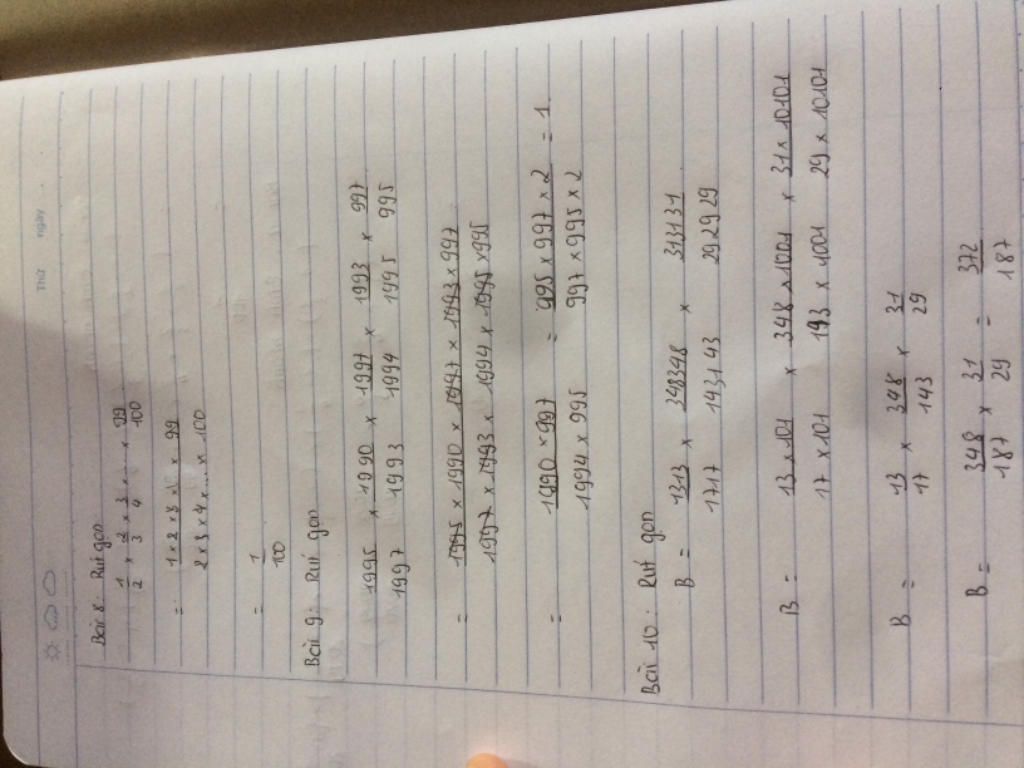 Thứ ngày
Bài 8: Rút gọn
1/2 × 2/3 × 3/4 × ... × 99/100
= (1 × 2 × 3 × ... × 99)/(2 × 3 × 4 × ... × 100)
= 1/100
Bài 9: Rút gọn
1995/1997 × 1990/1993 × 1997/1994 × 1993/1995 × 997/995
= (1995 × 1990 × 1997 × 1993 × 997)/(1997 × 1993 × 1994 × 1995 × 995)
= (1990 × 997)/(1994 × 995) = (995 × 997 × 2)/(997 × 995 × 2) = 1
Bài 10: Rút gọn
B = 1313/1717 × 348348/143143 × 313131/292929
B = (13 × 101)/(17 × 101) × (348 × 1001)/(193 × 1001) × (31 × 10101)/(29 × 10101)
B = 13/17 × 348/143 × 31/29
B = 348/187 × 31/29 = 372/187